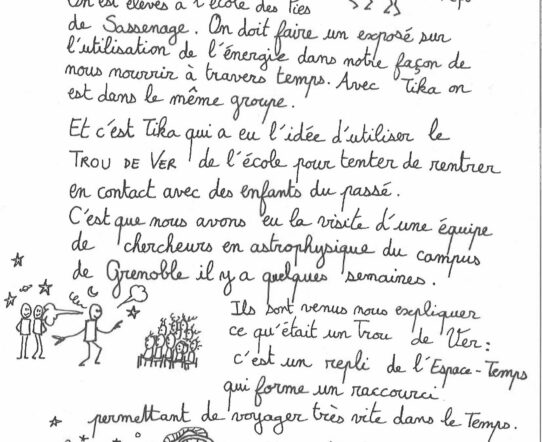 On est élèves à l'école des Pies
de Sassenage. On doit faire un exposé sur
l'utilisation de l'énergie dans notre façon de
nous nourrir à travers temps. Avec Tika on
est dans le même groupe.
Et c'est Tika qui a eu l'idée d'utiliser le
TROU DE VER de l'école pour tenter de rentrer
en contact avec des enfants du passé.
C'est que nous avons eu la visite d'une équipe
de chercheurs en astrophysique du campus
de Grenoble il y a quelques semaines.
Ils sont venus nous expliquer
ce qu'était un Trou de Ver :
c'est un repli de l'Espace-Temps
qui forme un raccourci
permettant de voyager très vite dans le Temps.